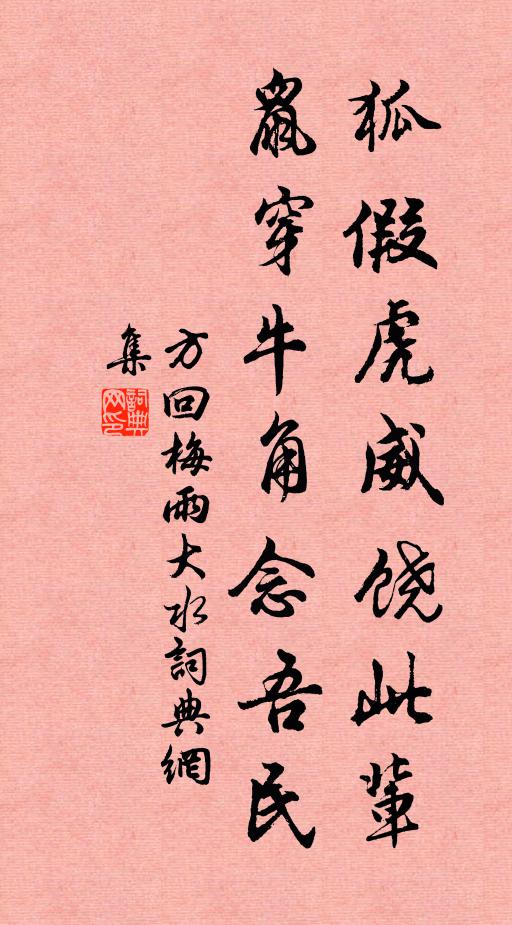 狐假虎威饶此輩
鼠穿牛角念吾民
方回梅雨大水詞典網
集
詞典网印